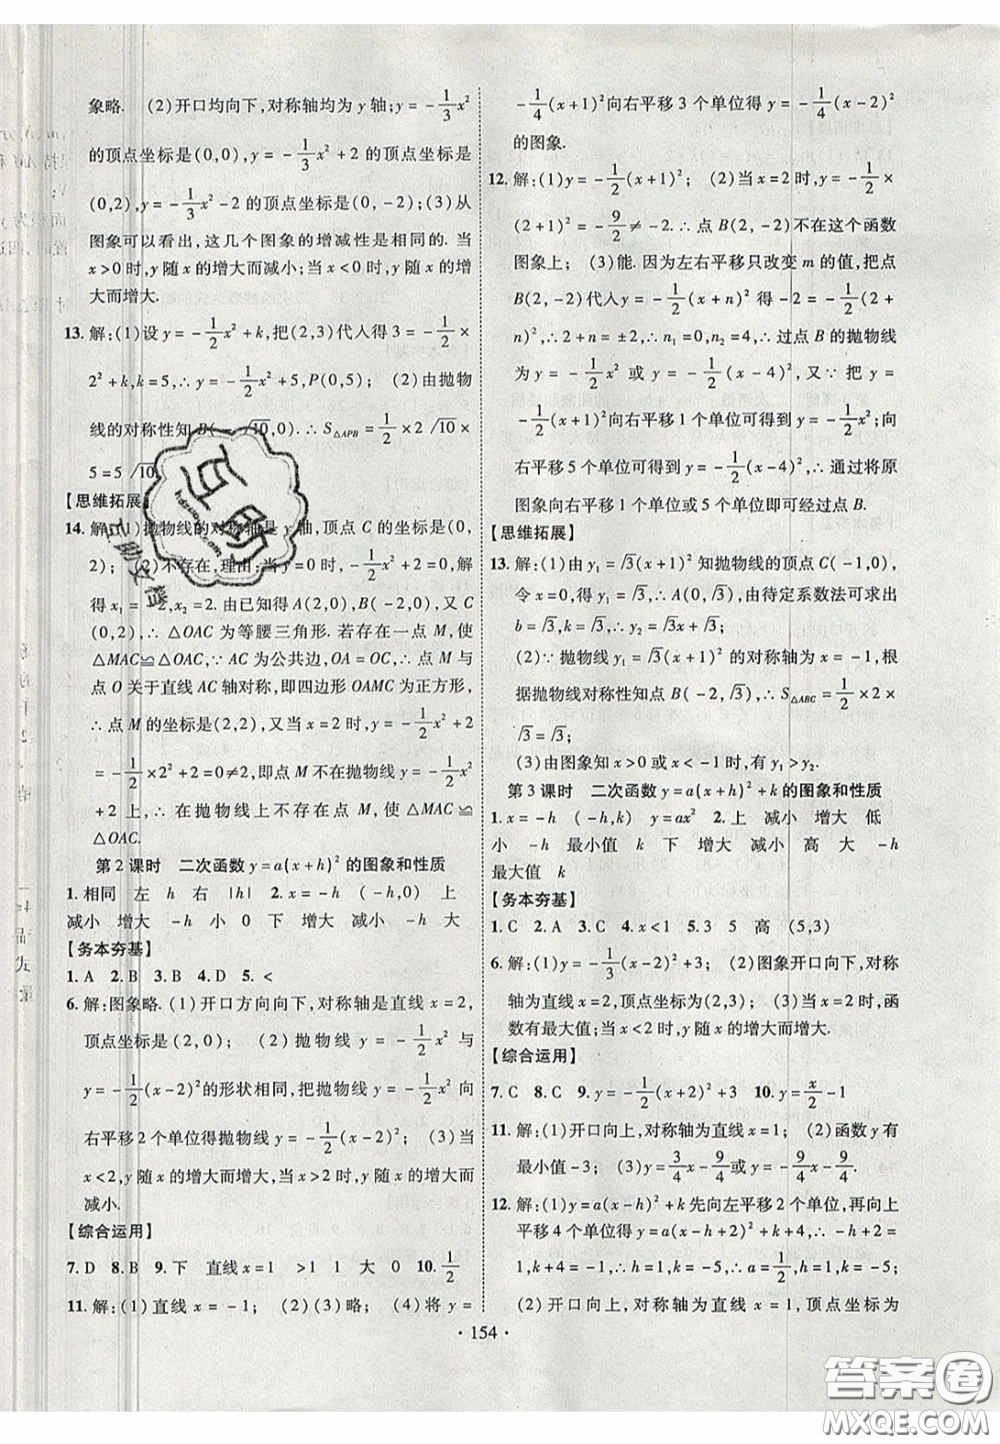 象略. (2)开口均向下,对称轴均为 y 轴;y = -1/3x²
的顶点坐标是(0,0),y = -1/3x² + 2 的顶点坐标是
(0,2),y = -1/3x² - 2 的顶点坐标是(0,-2);(3)从
图象可以看出,这几个图象的增减性是相同的. 当
x>0 时,y 随 x 的增大而减小;当 x<0 时,y 随 x 的增
大而增大.
13. 解:(1)设 y = -1/2x² + k,把(2,3)代入得 3 = -1/2 ×
2² + k,k = 5,∴ y = -1/2x² + 5,P(0,5); (2)由抛物
线的对称性知 B(-√10,0). ∴ S△APB = 1/2 × 2√10 ×
5 = 5√10.
【思维拓展】
14. 解:(1)抛物线的对称轴是 y 轴,顶点 C 的坐标是(0,
2); (2)不存在,理由:当 y = 0 时,-1/2x² + 2 = 0,解
得 x₁ = -2,x₂ = 2. 由已知得 A(2,0),B(-2,0),又 C
(0,2),∴ △OAC 为等腰三角形. 若存在一点 M,使
△MAC≌△OAC,∵ AC 为公共边,OA = OC,∴ 点 M 与
点 O 关于直线 AC 轴对称,即四边形 OAMC 为正方形,
∴ 点 M 的坐标是(2,2),又当 x = 2 时,y = -1/2x² + 2
= -1/2 × 2² + 2 = 0≠2,即点 M 不在抛物线 y = -1/2x²
+ 2 上,∴ 在抛物线上不存在点 M,使 △MAC ≌
△OAC.
第 2 课时 二次函数 y = a(x + h)² 的图象和性质
1. 相同 左 h 右 |h| 2. x = -h (-h,0) 上
减小 增大 -h 小 0 下 增大 减小 -h 大
【务本夯基】
1. A 2. B 3. B 4. D 5. <
6. 解:图象略. (1)开口方向向下,对称轴是直线 x = 2,
顶点坐标是(2,0); (2)抛物线 y = -1/2x² 与
y = -1/2(x-2)² 的形状相同,把抛物线 y = -1/2x² 向
右平移 2 个单位得抛物线 y = -1/2(x-2)²; (3)当
x<2,y 随 x 的增大而增大,当 x>2 时,y 随 x 的增大而
减小.
【综合运用】
7. D 8. B 9. 下 直线 x = 1 >1 1 大 0 10. 1/2
11. 解:(1)直线 x = -1; (2)(3)略; (4)将 y =
-1/4(x+1)² 向右平移 3 个单位得 y = -1/4(x-2)²
的图象.
12. 解:(1)y = -1/2(x+1)²; (2)当 x = 2 时,y = -1/2 ×
(2+1)² = -9/2 ≠ -2. ∴ 点 B(2,-2)不在这个函数
图象上; (3)能. 因为左右平移只改变 m 的值,把点
B(2,-2)代入 y = -1/2(x+n)² 得 -2 = -1/2(2+
n)²,∴ 2 + n = ±2,∴ n₁ = 0,n₂ = 4,∴ 过点 B 的抛物线
为 y = -1/2x² 或 y = -1/2(x-4)²,又 ∵ 把 y =
-1/2(x+1)² 向右平移 1 个单位可得到 y = -1/2x²,向
右平移 5 个单位可得到 y = -1/2(x-4)²,∴ 通过将原
图象向右平移 1 个单位或 5 个单位即可经过点 B.
【思维拓展】
13. 解:(1)由 y₁ = √3(x+1)² 知抛物线的顶点 C(-1,0),
令 x = 0,得 y₁ = √3,∴ A(0,√3),由待定系数法可求出
b = √3,k = √3,∴ y₂ = √3x + √3;
(2)∵ 抛物线 y₁ = √3(x+1)² 的对称轴为 x = -1,根
据抛物线对称性知点 B(-2,√3),∴ S△ABC = 1/2 × 2 ×
√3 = √3;
(3)由图象知 x>0 或 x<-1 时,有 y₁ > y₂.
第 3 课时 二次函数 y = a(x + h)² + k 的图象和性质
1. x = -h (-h,k) y = ax² 2. 上 减小 增大 低
小 -h 最小值 k 下 增大 减小 高 大 -h
最大值 k
【务本夯基】
1. C 2. A 3. C 4. x<1 5. 3 5 高 (5,3)
6. 解:(1)y = -1/3(x-2)² + 3; (2)图象开口向下,对称
轴为直线 x = 2,顶点坐标为(2,3);(3)当 x = 2 时,函
数有最大值;当 x<2 时,y 随 x 的增大而增大.
【综合运用】
7. C 8. C 9. y = -1/2(x+2)² + 3 10. y = x/2 - 1
11. 解:(1)开口向上,对称轴为直线 x = 1; (2)函数 y 有
最小值 -3; (3)y = 3/4x - 9/4 或 y = -9/4x - 9/4.
12. 解:(1)y = a(x-h)² + k 先向左平移 2 个单位,再向上
平移 4 个单位得 y = a(x-h+2)² + k + 4,∴ -h + 2 =
1,k + 4 = -1,∴ h = 1,k = -5,∴ a = 1/2,h = 1,k = -5;
(2)开口向上,对称轴为直线 x = 1,顶点坐标为
· 154 ·
互助
互助文档
答案圈
MXQE.COM